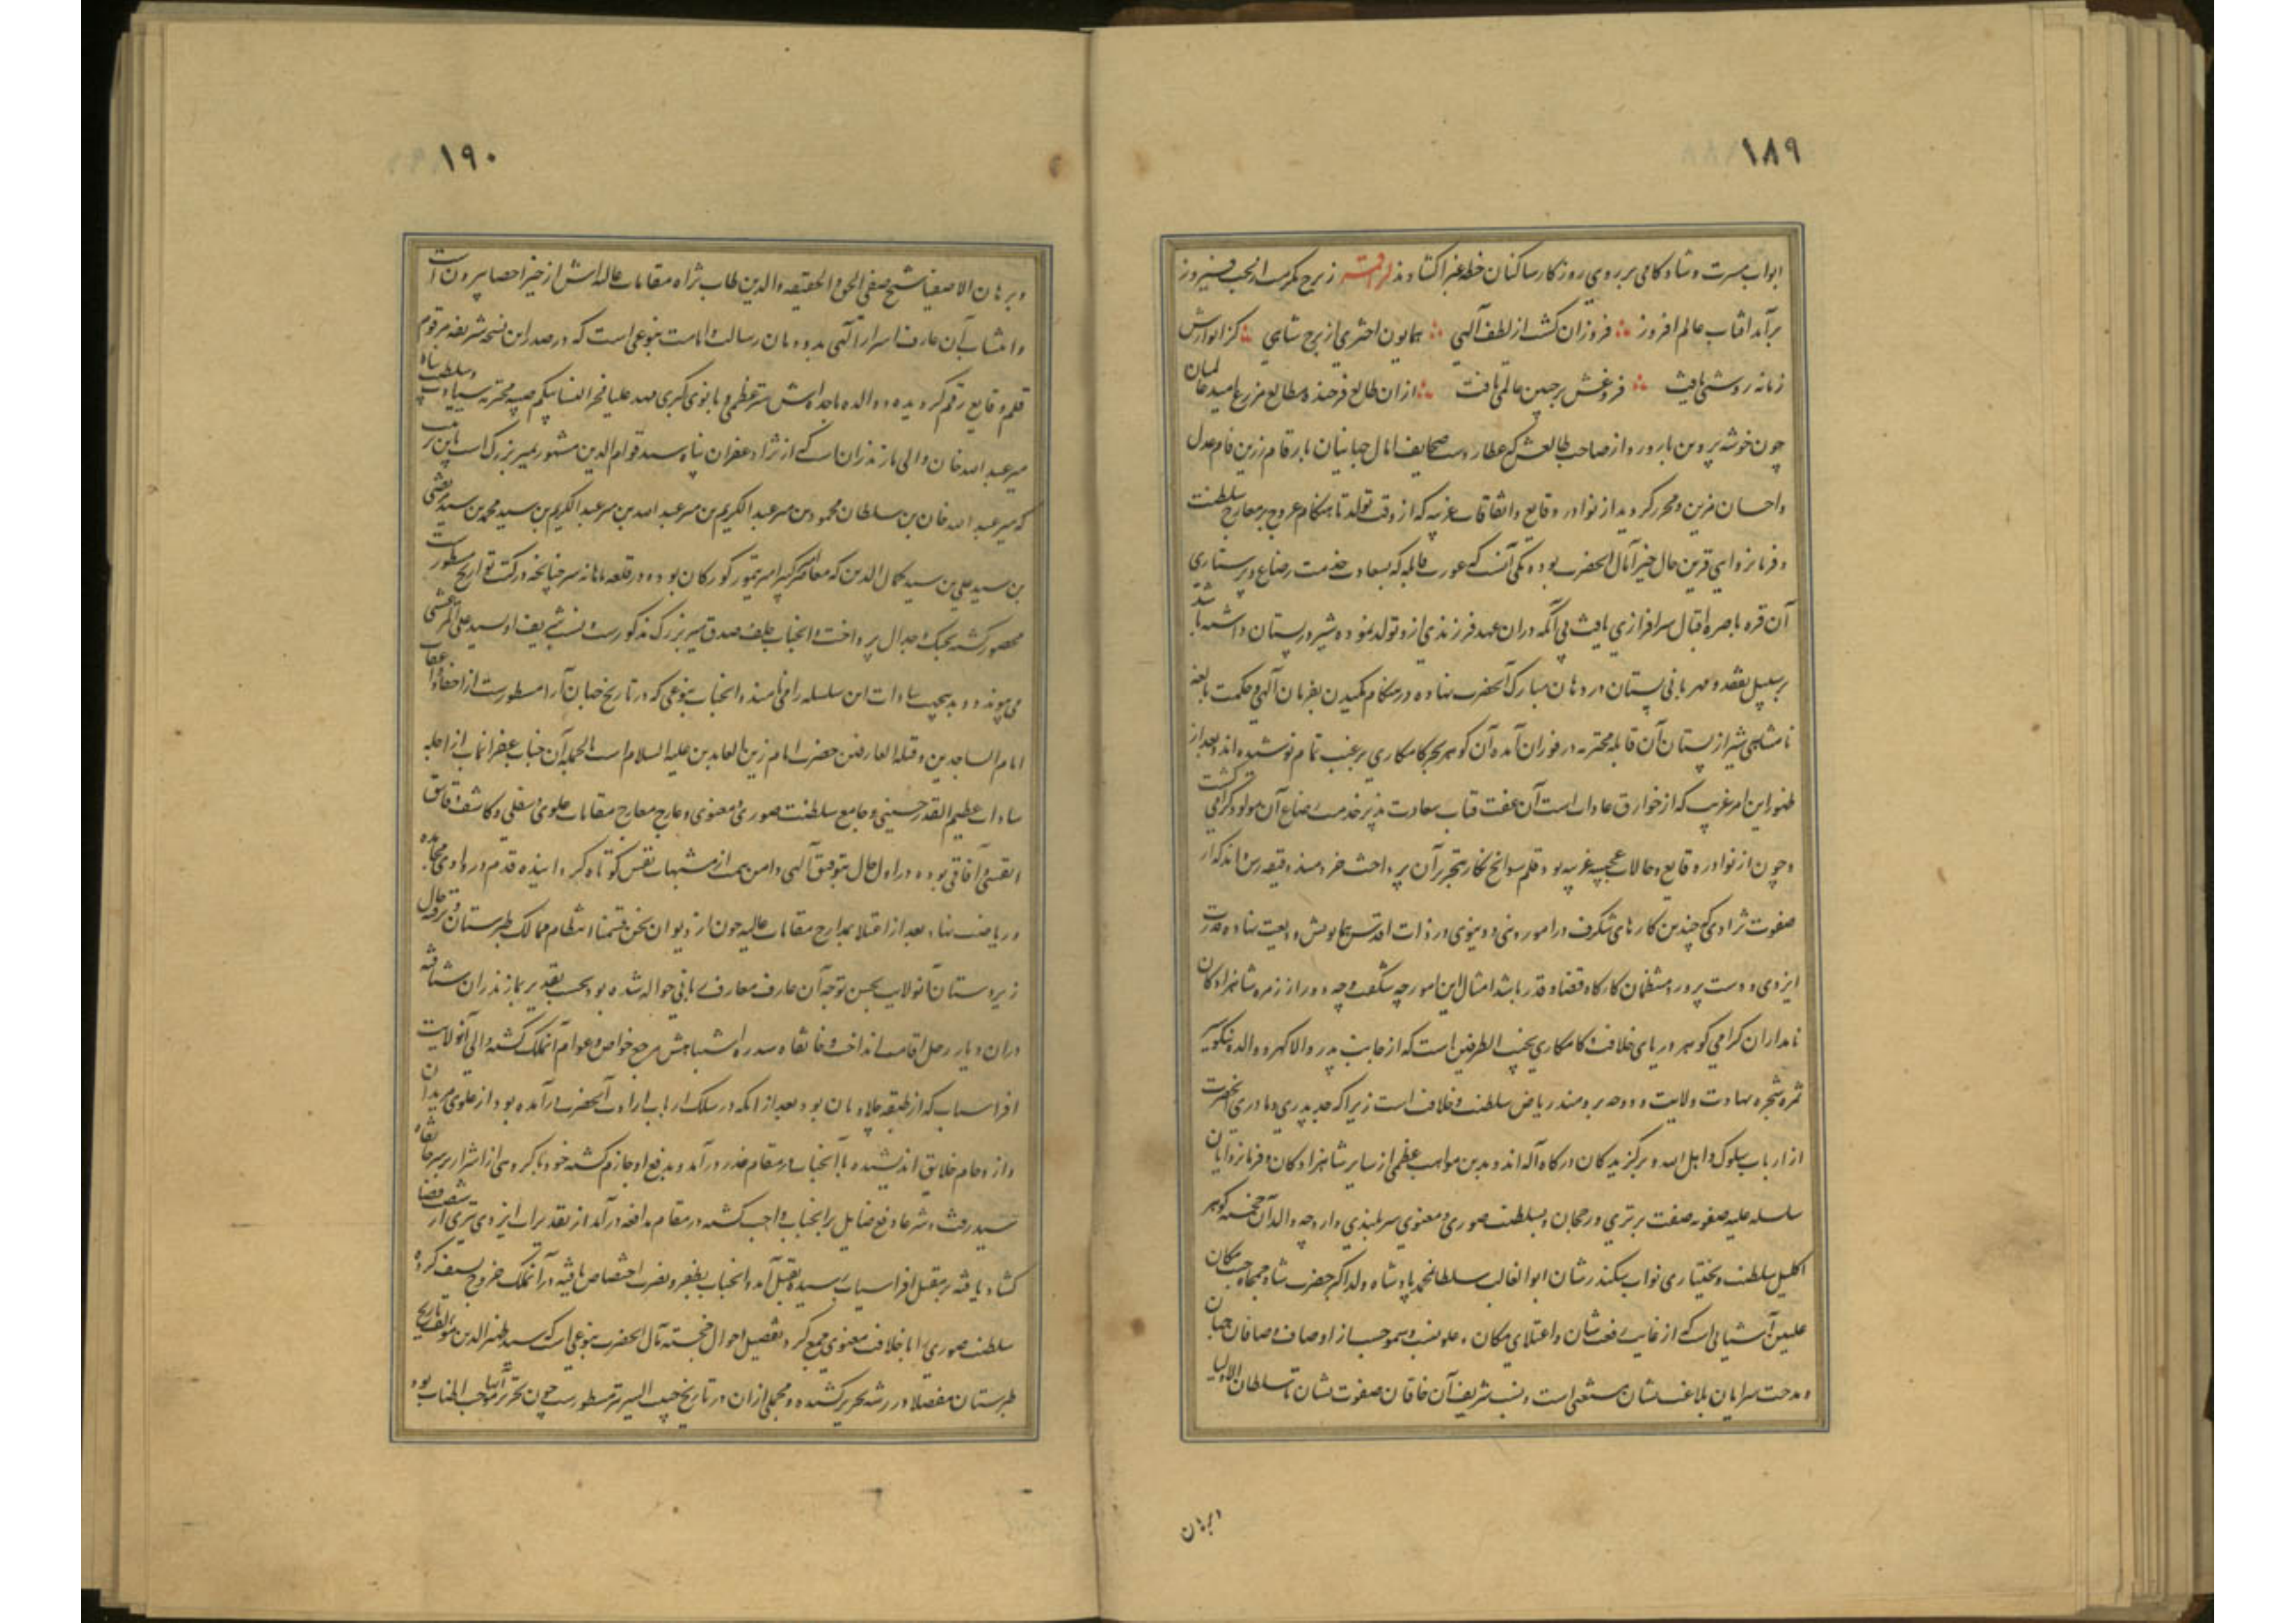 ۱۸۹
ابواب مسرت و شادکامی بر روی روزکار ساکنان خطه غبرا کشادند لراقمه ز برج مکرمت از بخت فیروز
برآمد افتاب عالم افروز فروزان کشت از لطف آلهی همایون اختری از برج شاهی کز انوارش
زمانه روشنی یافت فروغش بر جبین عالمی تافت ازان طالع فرخنده مطالع مزرع امید عالمیان
چون خوشه پروین بارور و از صاحب طالعش که عطاردست صحایف امال جهانیان بارقام زرین فام عدل
و احسان مزین و محرر کردید از نوادر وقایع و اتفاقات غریبه که از وقت تولد تا هنکام عروج بر معارج سلطنت
و فرمانروایی قرین حال خیرآمال آنحضرت بوده یکی آنست که عورت قابله که بسعادت خدمت رضاع و پرستاری
آن قره باصره اقبال سرافرازی یافت بی آنکه دران عهد فرزندی ازو تولد نموده شیر در پستان داشته باشد
بر سبیل تفقد و مهربانی پستان در دهان مبارک آنحضرت نهاده در هنکام مکیدن بفرمان آلهی و حکمت بالغه
نامتناهی شیر از پستان آن قابله محترمه در فوران آمده آن کوهر بحر کامکاری برغبت تمام نوشیده اند و بعد از
ظهور این امر غریب که از خوارق عادات است آن عفت قباب سعادت پذیر خدمت رضاع آن مولود کرامی کشت
و چون از نوادر وقایع و حالات عجیبه غریبه بود قلم سوانح نکار بتحریر آن پرداخت خردمند دقیقه رس داند که از
صفوت نژادی که چندین کارهای شکرف در امور دینی و دنیوی در ذات اقدس همایونش ودیعت نهاده قدرت
ایزدی و دست پرورد منتظمان کارکاه قضا و قدر باشد امثال این امور چه شکفت و چه دور از زمره شاهزادکان
نامداران کرامی کوهر دریای خلافت و کامکاری نجیب الطرفین است که از جانب پدر والاکهر و والده نیکوسیر
ثمره شجره سیادت و ولایت و دوحه برومند ریاض سلطنت و خلافت است زیرا که جد پدری و مادری آنحضرت
از ارباب سلوک و اهل الله و برکزیدکان درکاه آله اند و بدین مواهب عظمی از سایر شاهزادکان و فرمانروایان
سلسله علیه صفویه صفت برتری و رجحان و بسلطنت صوری و معنوی سربلندی دارد چه والد آن خجسته کوهر
اکلیل سلطنت و بختیاری نواب سکندر شان ابوالغالب سلطانمحمد پادشاه ولد اکبر حضرت شاه جمجاه جنت مکان
علیین آشیانی است که از غایت رفعت شان و اعتلای مکان و علو نسب و سمو حسب از اوصاف وصافان جهان
و مدحت سرایان بلاغت نشان مستغنی است و نسب شریف آن خاقان صفوت نشان تا سلطان الاولیا
و برهان
۱۹۰
و برهان الاصفیا شیخ صفی الحق و الحقیقه و الدین طاب ثراه مقامات عالیه اش از حیز احصا بیرون است
و انتساب آن عارف اسرار آلهی بدودمان رسالت و امامت بنوعی است که در صدر این نسخه شریفه مرقوم
قلم وقایع رقم کردیده و والده ماجده اش ستر عظمی و بانوی کبری مهد علیا فخر النسا بیکم صبیه محترمه سیادت و سلطنت پناه
میر عبد الله خان والی مازندران است که از نژاد غفران پناه سید قوام الدین مشهور بمیر بزرک است باین ترتیب
که میر عبد الله خان بن سلطان محمود بن میر عبد الکریم بن میر عبد الله بن میر عبد الکریم بن سید محمد بن سید مرتضی
بن سید علی بن سید کمال الدین که معاصر امیر کبیر امیر تیمور کورکان بوده و در قلعه ماهانه سر چنانچه در کتب تواریخ مسطورست
محصور کشته بجنک و جدال پرداخت و آنجناب خلف صدق میر بزرک مذکورست و نسب شریف او بسید علی المرعشی
می پیوندد و بدینجهت سادات این سلسله را مرعشی نامند و آنجناب بنوعی که در تاریخ جهان آرا مسطورست از احفاد و اعقاب
امام الساجدین و قبله العارفین حضرت امام زین العابدین علیه السلام است بالجمله آن جناب غفرانماب از اجله
سادات عظیم القدر حسینی و جامع سلطنت صوری و معنوی و عارج معارج مقامات علوی و سفلی و کاشف دقایق
انفسی و آفاقی بوده در اول حال بتوفیق آلهی دامن همت از مشتهیات نفس کوتاه کردانیده قدم در وادی مجاهده
و ریاضت نهاد و بعد از اعتلا بمدارج مقامات عالیه چون از دیوان نحن قسمنا انتظام ممالک طبرستان و ترفیه حال
زیردستان آنولایت بحسن توجه آن عارف معارف یزدانی حواله شده بود بحسب تقدیر بمازندران شتافته
دران دیار رحل اقامت انداخت و خانقاه سدره اشتباهش مرجع خواص و عوام آنملک کشته والی آنولایت
افراسیاب که از طبقه چلاویان بود بعد از آنکه در سلک ارباب ارادت آنحضرت درآمده بود از غلوی مریدان
و ازدحام خلایق اندیشیده با آنجناب در مقام غدر درآمد و بدفع او جازم کشته خود با کروهی از اشرار بر سر خانقاه
سید رفت و شرعا دفع ضایل بر آنجناب واجب کشته در مقام مدافعه درآمد از تقدیرات ایزدی تیری از شصت قضا
کشاد یافته بر مقتل افراسیاب رسیده بقتل آمد و آنجناب بظفر و نصرت اختصاص یافته در آنملک خروج بسیف کرده
سلطنت صوری را با خلافت معنوی جمع کرد و تفصیل احوال خجسته مآل آنحضرت بنوعی است که سید ظهیر الدین مؤلف تاریخ
طبرستان مفصلا در رشته تحریر کشیده و مجملی از آن در تاریخ حبیب السیر نیز مسطورست چون تحریر آنها موجب اطناب بود